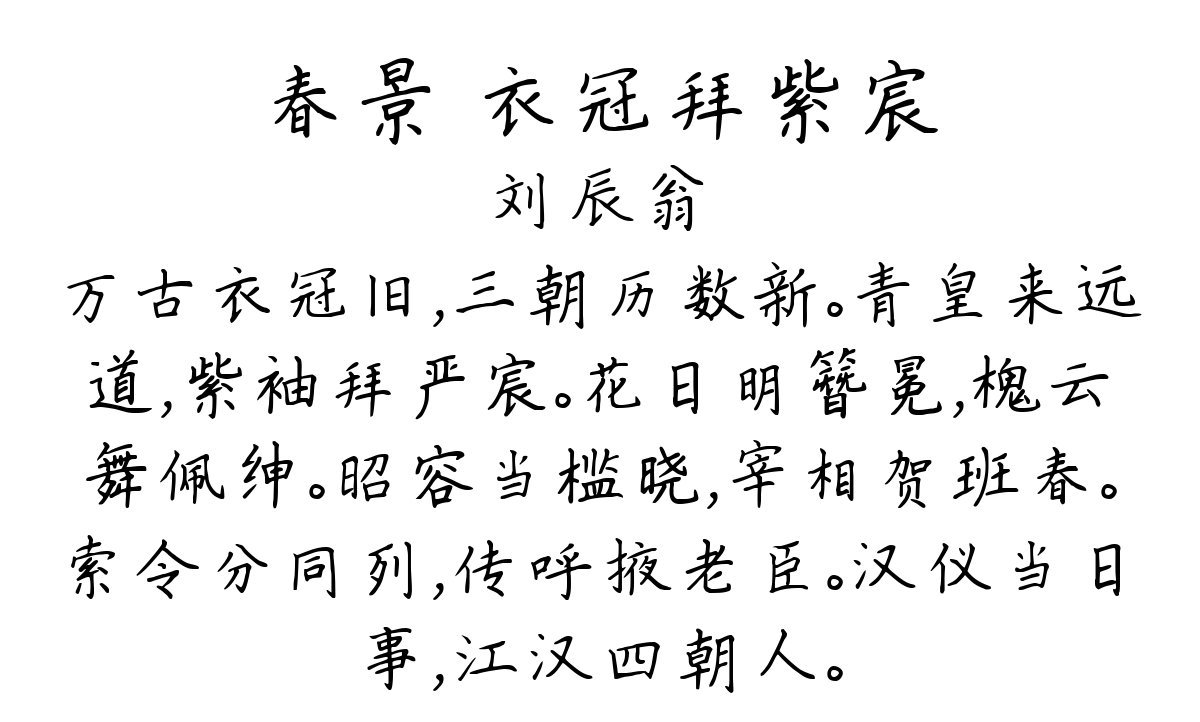 春景 衣冠拜紫宸
刘辰翁
万古衣冠旧,三朝历数新。青皇来远
道,紫袖拜严宸。花日明簪冕,槐云
舞佩绅。昭容当槛晓,宰相贺班春。
索令分同列,传呼掖老臣。汉仪当日
事,江汉四朝人。